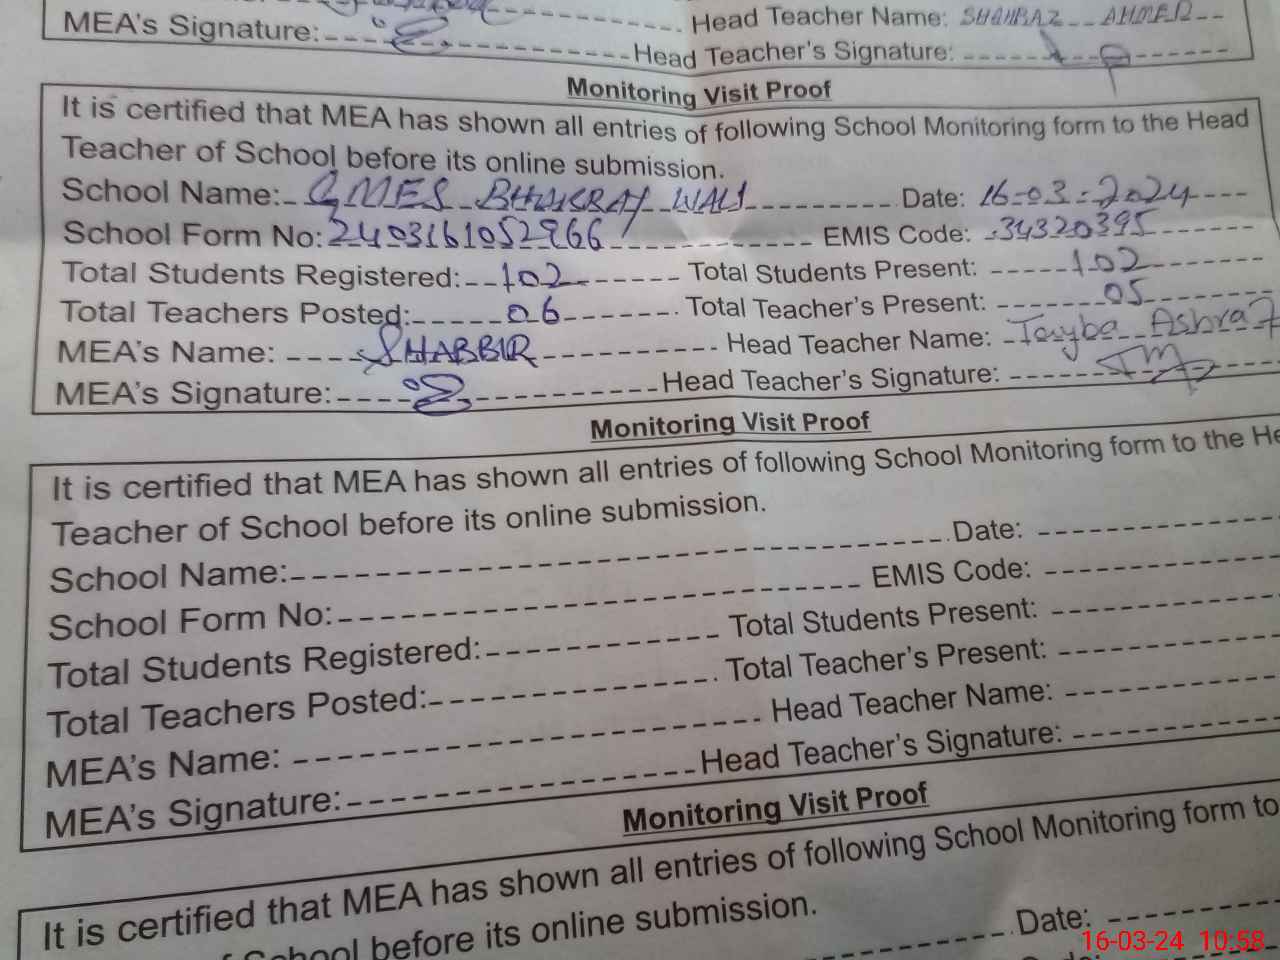 MEA's Signature: Head Teacher Name: SHAHBAZ AHMED
Head Teacher's Signature:
Monitoring Visit Proof
It is certified that MEA has shown all entries of following School Monitoring form to the Head
Teacher of School before its online submission.
School Name: GMES BHAKRAY WALI Date: 16-03-2024
School Form No: 2403161052966 EMIS Code: 34320395
Total Students Registered: 102 Total Students Present: 102
Total Teachers Posted: 06 Total Teacher's Present: 05
MEA's Name: SHABBIR Head Teacher Name: Tayba Ashraf
MEA's Signature: Head Teacher's Signature:
Monitoring Visit Proof
It is certified that MEA has shown all entries of following School Monitoring form to the He
Teacher of School before its online submission.
School Name: Date:
School Form No: EMIS Code:
Total Students Registered: Total Students Present:
Total Teachers Posted: Total Teacher's Present:
MEA's Name: Head Teacher Name:
MEA's Signature: Head Teacher's Signature:
Monitoring Visit Proof
It is certified that MEA has shown all entries of following School Monitoring form to
School before its online submission.
Date:
16-03-24 10:58